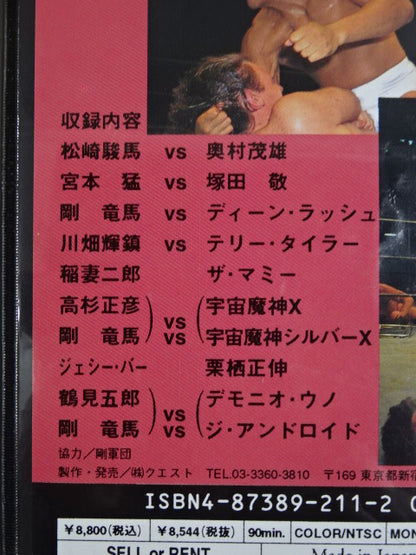 収録内容
松崎駿馬 vs 奥村茂雄
宮本 猛 vs 塚田 敬
剛 竜馬 vs ディーン・ラッシュ
川畑輝鎮 vs テリー・タイラー
稲妻二郎 ザ・マミー
高杉正彦 宇宙魔神X
vs
剛 竜馬 vs 宇宙魔神シルバーX
ジェシー・バー 栗栖正伸
鶴見五郎 vs デモニオ・ウノ
剛 竜馬 vs ジ・アンドロイド
協力/剛軍団
製作・発売/㈱クエスト TEL.03-3360-3810 〒169 東京都新宿
ISBN4-87389-211-2
¥8,800(税込) ¥8,544(税抜) 90min. COLOR/NTSC MON
SELL or RENT Made in Japan